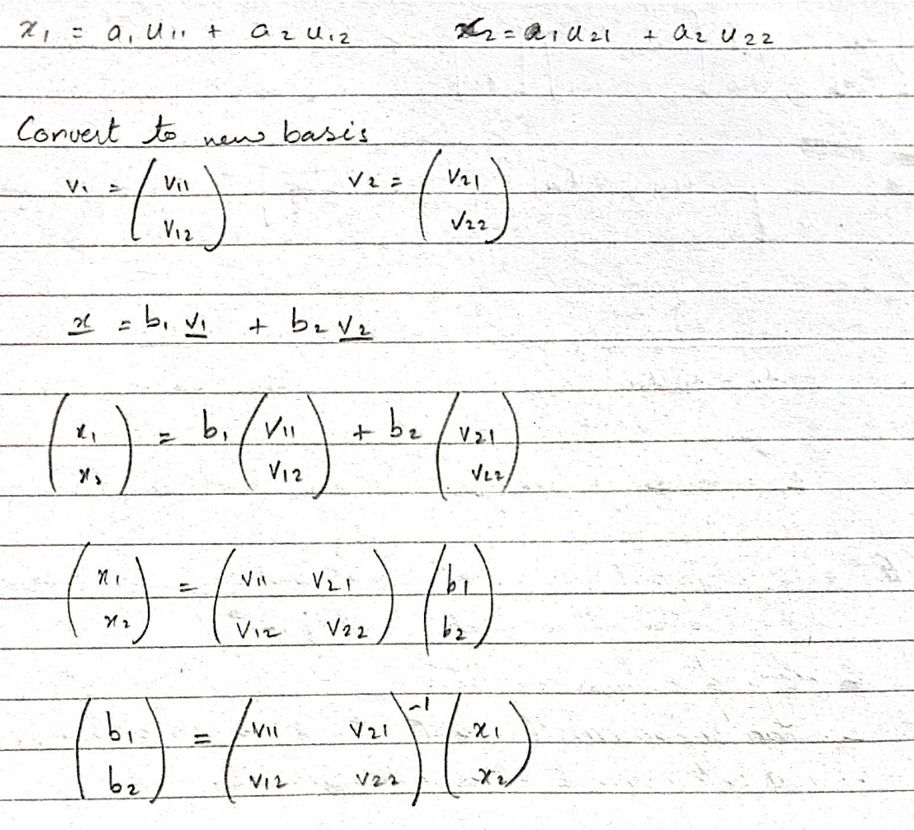 x₁ = a₁ u₁₁ + a₂ u₁₂ x₂ = a₁ u₂₁ + a₂ u₂₂
Convert to new basis
v₁ = (v₁₁ v₁₂) v₂ = (v₂₁ v₂₂)
x = b₁ v₁ + b₂ v₂
(x₁ x₂) = b₁ (v₁₁ v₁₂) + b₂ (v₂₁ v₂₂)
(x₁ x₂) = (v₁₁ v₂₁ v₁₂ v₂₂) (b₁ b₂)
(b₁ b₂) = (v₁₁ v₂₁ v₁₂ v₂₂)⁻¹ (x₁ x₂)